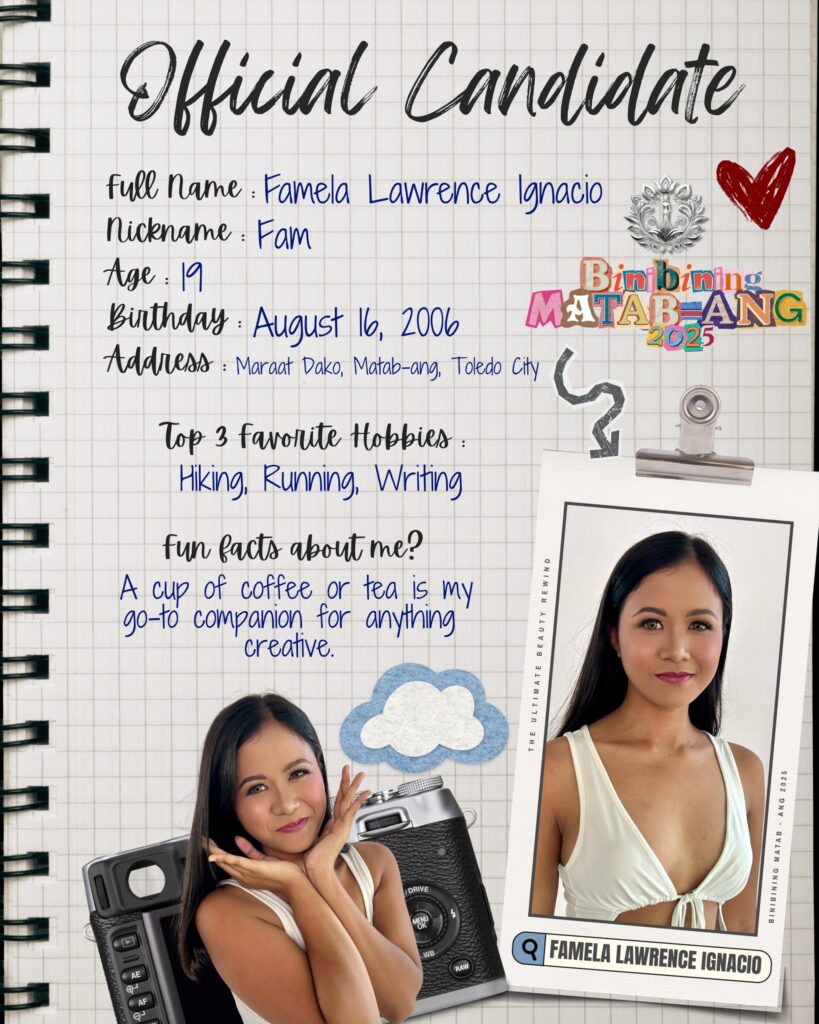 Official Candidate
Full Name : Famela Lawrence Ignacio
Nickname : Fam
Age : 19
Birthday : August 16, 2006
Address : Maraat Dako, Matab-ang, Toledo City
Binibining
MATAB-ANG
2025
Top 3 Favorite Hobbies :
Hiking, Running, Writing
Fun facts about me?
A cup of coffee or tea is my
go-to companion for anything
creative.
THE ULTIMATE BEAUTY REWIND
BINIBINING MATAB - ANG 2025
FAMELA LAWRENCE IGNACIO
DRIVE
MENU
OK
WB
RAW
AE
AF